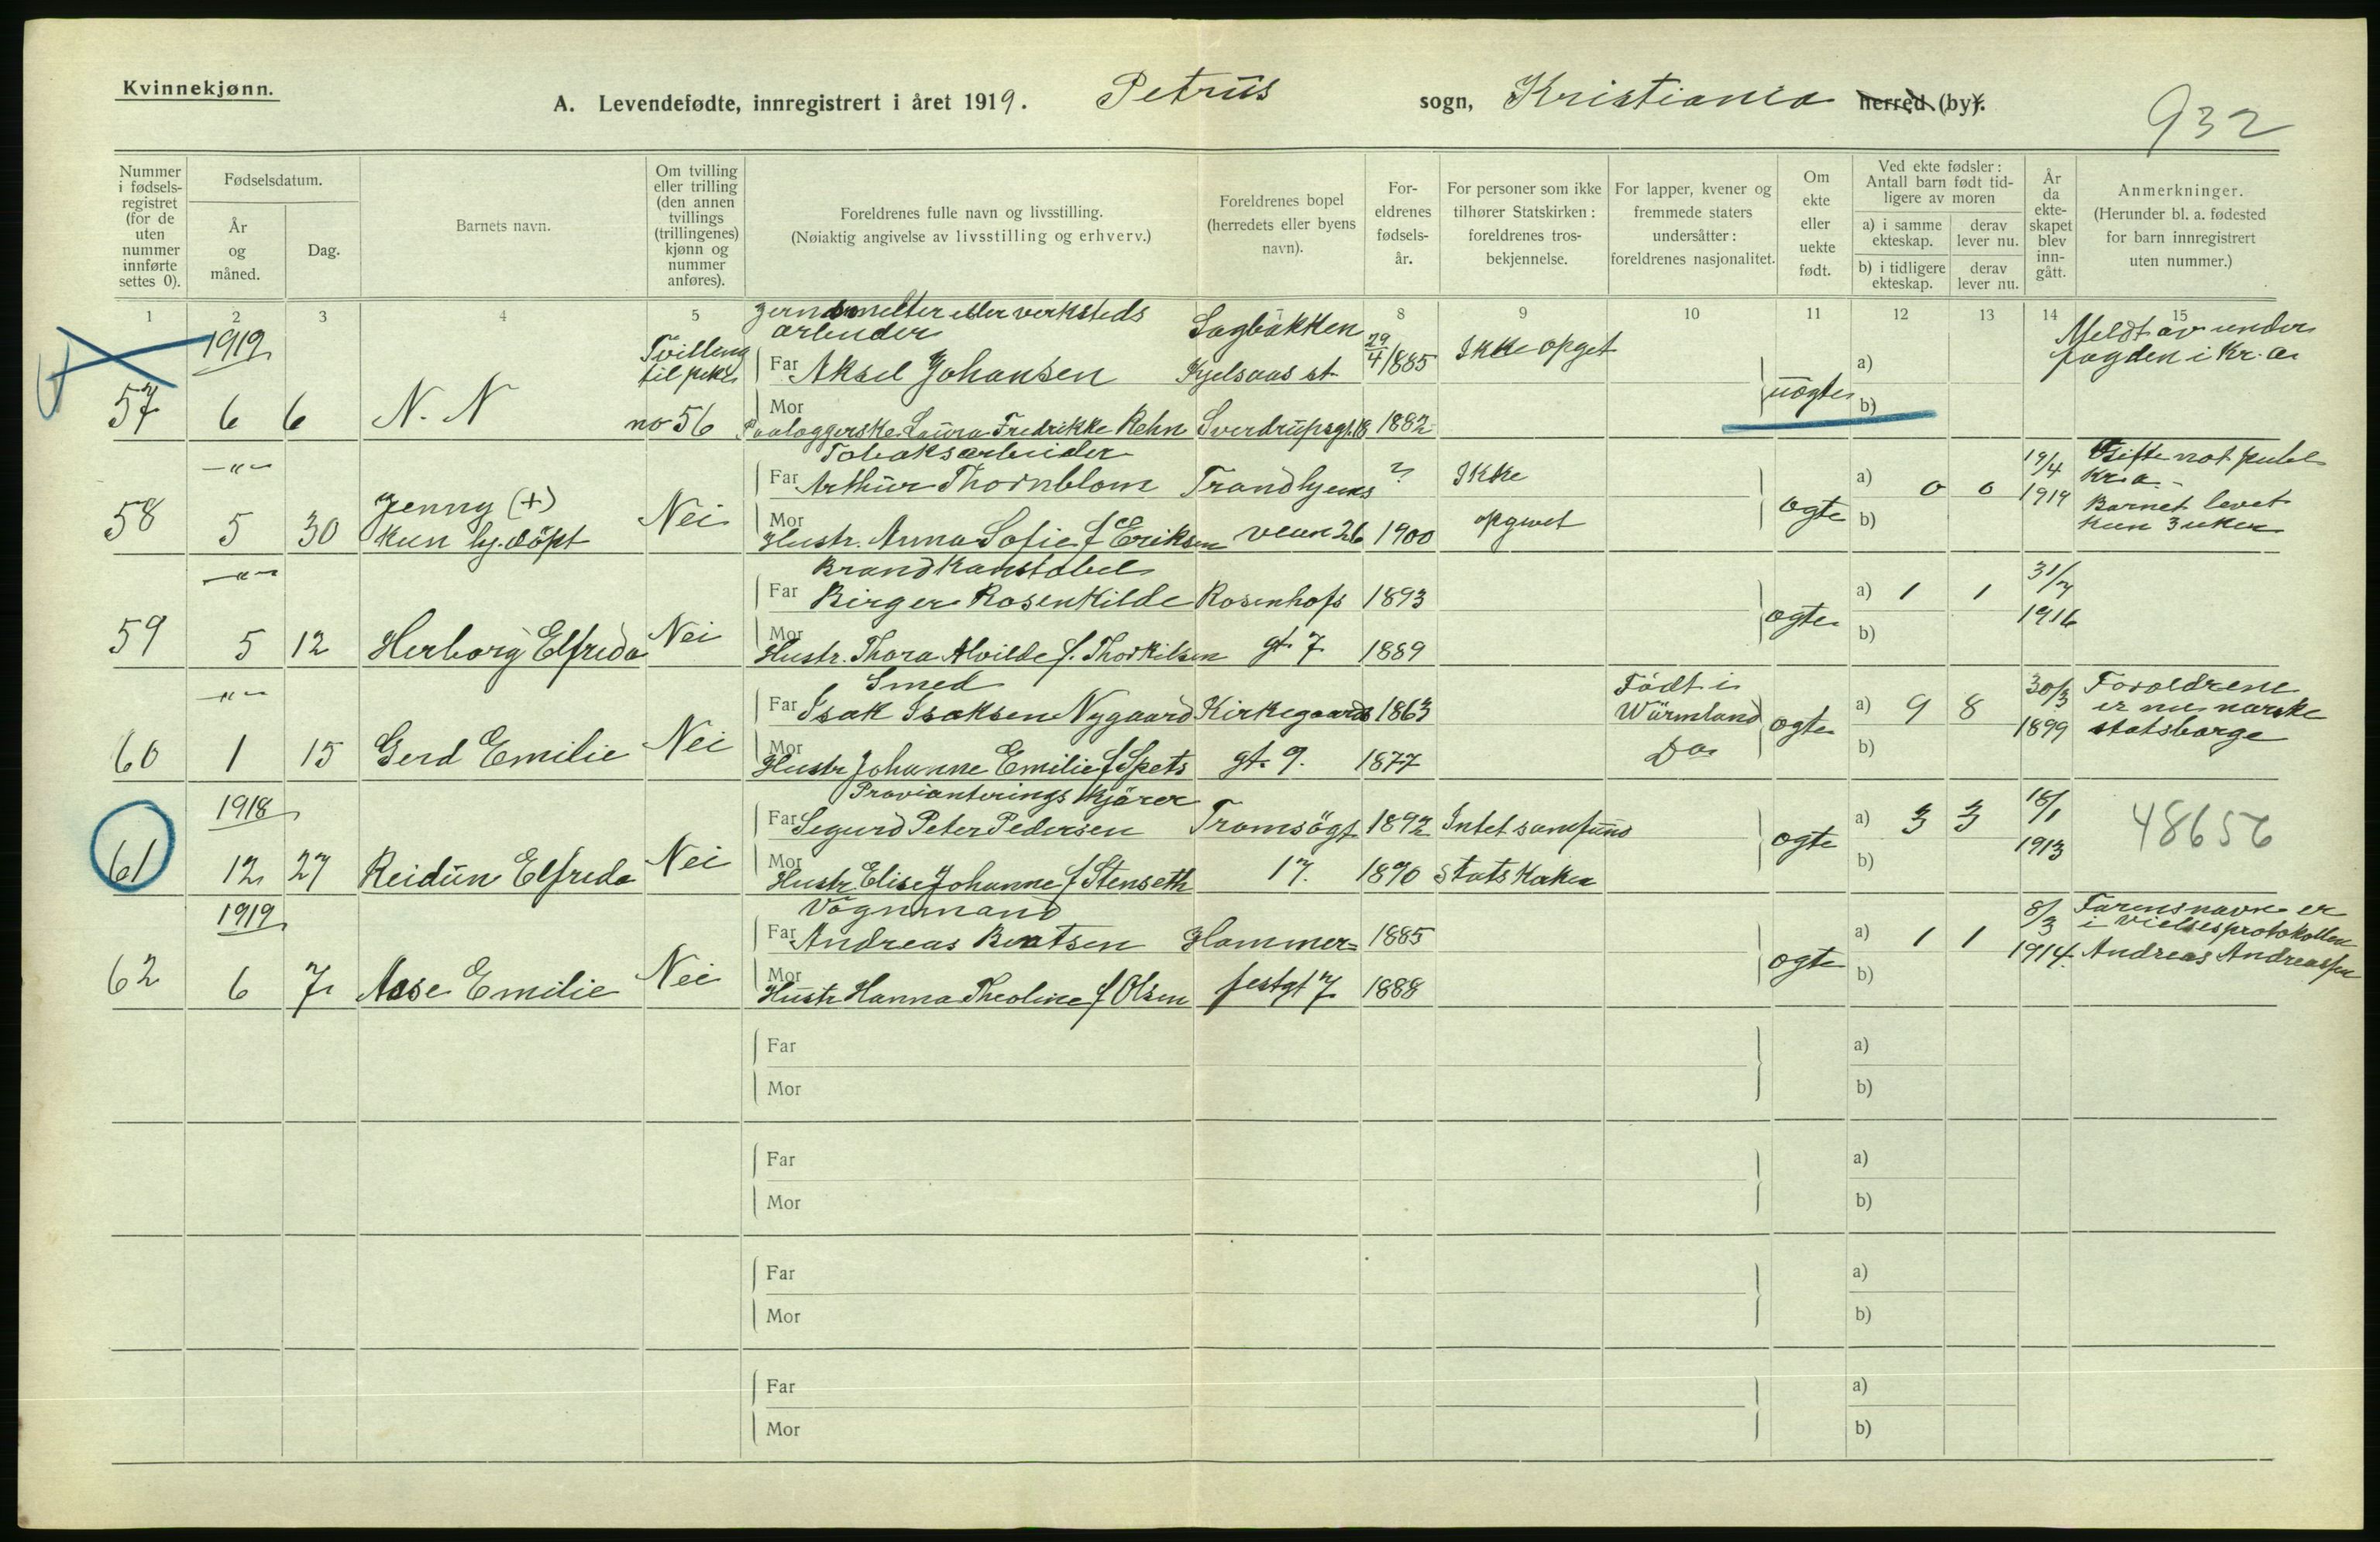 Kvinnekjønn.
A. Levendefødte, innregistrert i året 1919. Petrus sogn, Kristiania herred (by).
932
Nummer i fødselsregistret (for de uten nummer innførte settes 0).
Fødselsdatum.
År og måned.
Dag.
Barnets navn.
Om tvilling eller trilling (den annen tvillings (trillingenes) kjønn og nummer anføres).
Foreldrenes fulle navn og livsstilling.
(Nøiaktig angivelse av livsstilling og erhverv.)
Foreldrenes bopel (herredets eller byens navn).
Foreldrenes fødselsår.
For personer som ikke tilhører Statskirken: foreldrenes trosbekjennelse.
For lapper, kvener og fremmede staters undersåtter: foreldrenes nasjonalitet.
Om ekte eller uekte født.
Ved ekte fødsler: Antall barn født tidligere av moren
a) i samme ekteskap.
derav lever nu.
b) i tidligere ekteskap.
derav lever nu.
År da ekteskapet blev inngått.
Anmerkninger.
(Herunder bl. a. fødested for barn innregistrert uten nummer.)
1 2 3 4 5 8 9 10 11 12 13 14 15
Jernsmelter eller verksteds
arbeider
1919
Tvilling til pike Far Aksel Johansen Sagbakken Kjelsaas st. 29/4 1885 Ikke opget a) Meldt av under
fogden i Kr.a.
57 6 6 N. N no 56 Mor Laura Fredrikke Rehn Sverdrupsgt. 18 1882 uegte b)
Tobaksarbeider
-"- Far Arthur Thornblom Trondhjems ? Ikke a) 0 0 19/4 Gifte not
Kr.a.
58 5 30 Jenny (+)
Kun hj. döpt Nei Mor Hustr. Anna Sofie f Eriksen veien 26 1900 opgivet egte b) 1919 Barnet levet
kun 3 uker
Brandkonstabel
-"- Far Birger Rosenkilde Rosenhofs 1893 a) 1 1 31/7
59 5 12 Herborg Elfreda Nei Mor Hustr. Thora Alvilde f. Thorkilsen gt. 7 1889 egte b) 1916
Smed
-"- Far Isak Isaksen Nygaard Kirkegaards 1863 Født i
Wärmland a) 9 8 30/3 Foreldrene
er nu norske
60 1 15 Gerd Emilie Nei Mor Hustr Johanne Emilie f Spets gt. 9. 1877 Do egte b) 1899 statsborge
Provianterings kjörer
1918 Far Sigurd Peter Pedersen Tromsögt 1892 Intet samfund a) 3 3 18/1 48656
61 12 27 Reidun Elfreda Nei Mor Hustr. Elise Johanne f Stenseth 17. 1890 egte b) 1913
Vognmand
1919 Far Andreas Berntsen Hammer= 1885 a) 1 1 8/3 Farens navn er
i vielsesprotokollen
62 6 7 Aase Emilie Nei Mor Hustr Hanna Theoline f Olsen festgt 7 1888 egte b) 1914. Andreas Andreassen
Far a)
Mor b)
Far a)
Mor b)
Far a)
Mor b)
Far a)
Mor b)